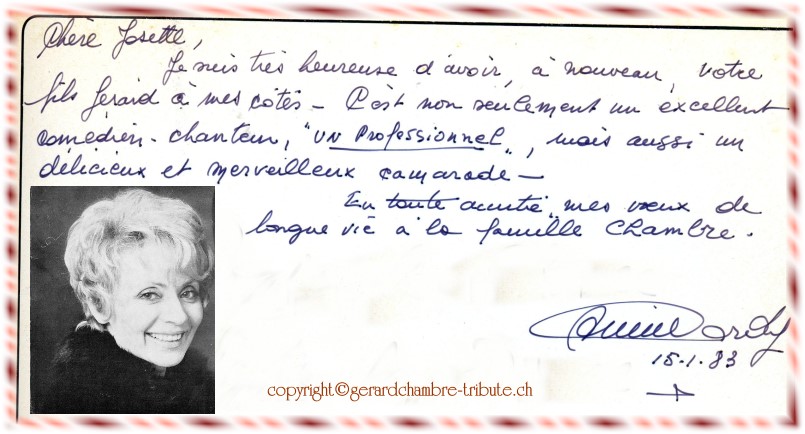 Chère Josette,
Je suis très heureuse d'avoir, à nouveau, votre
fils Gérard à mes côtés - C'est non seulement un excellent
comédien-chanteur, "UN Professionnel", mais aussi un
délicieux et merveilleux camarade -
En toute amitié mes vœux de
longue vie à la famille Chambre.
15.1.83
copyright©gerardchambre-tribute.ch